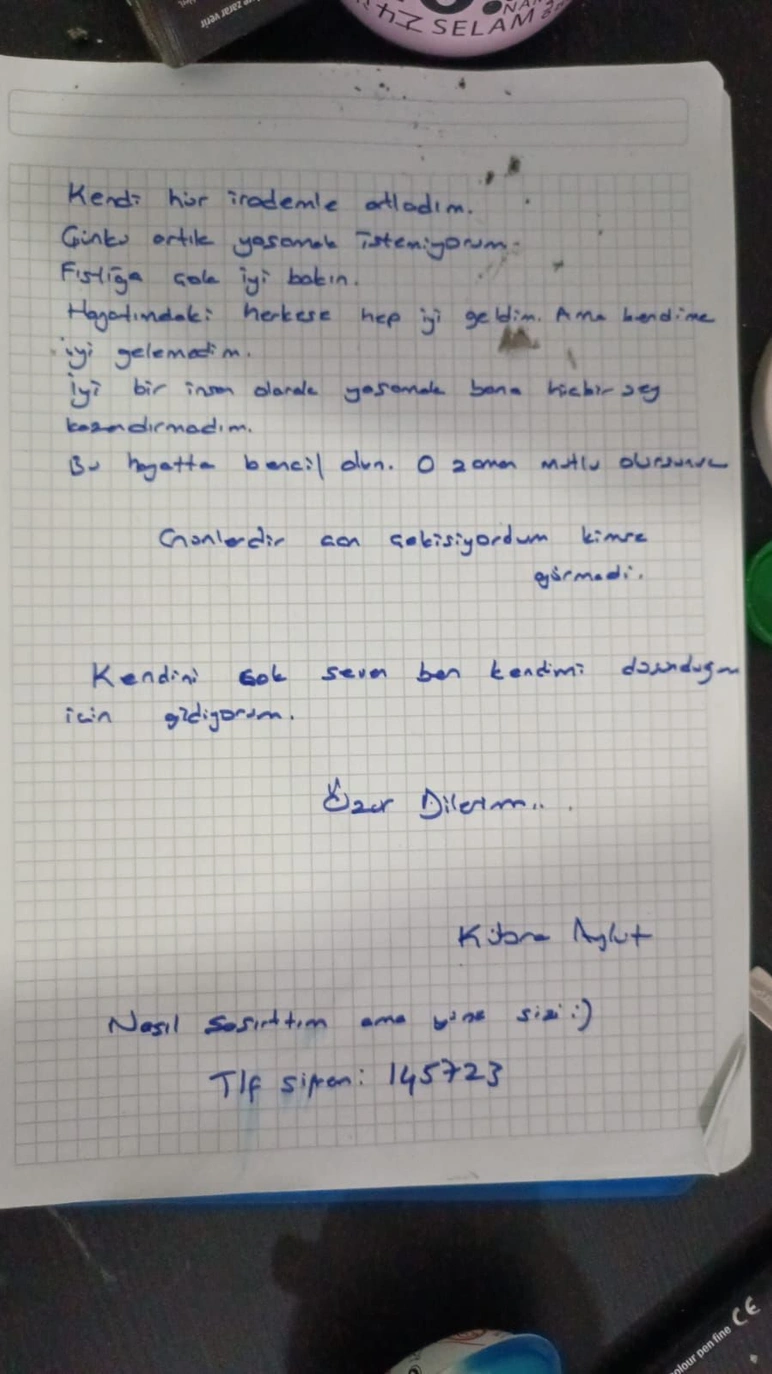 zarar verir
SELAM
Kendi hür irademle atladım.
Çünkü artık yaşamak istemiyorum.
Fıstığa çok iyi bakın.
Hayatındaki herkese hep iyi geldim. Ama kendime
iyi gelemedim.
İyi bir insan olarak yaşamak bana hiçbir şey
kazandırmadım.
Bu hayatta bencil olun. O zaman mutlu olursunuz
Günlerdir can çekişiyordum kimse
görmedi.
Kendini çok seven ben kendimi
için gidiyorum.
Özür Dilerim...
Kübra
Nasıl şaşırttım ama yine sizi :)
Tlf şifrem: 145723
colour pen fine CE